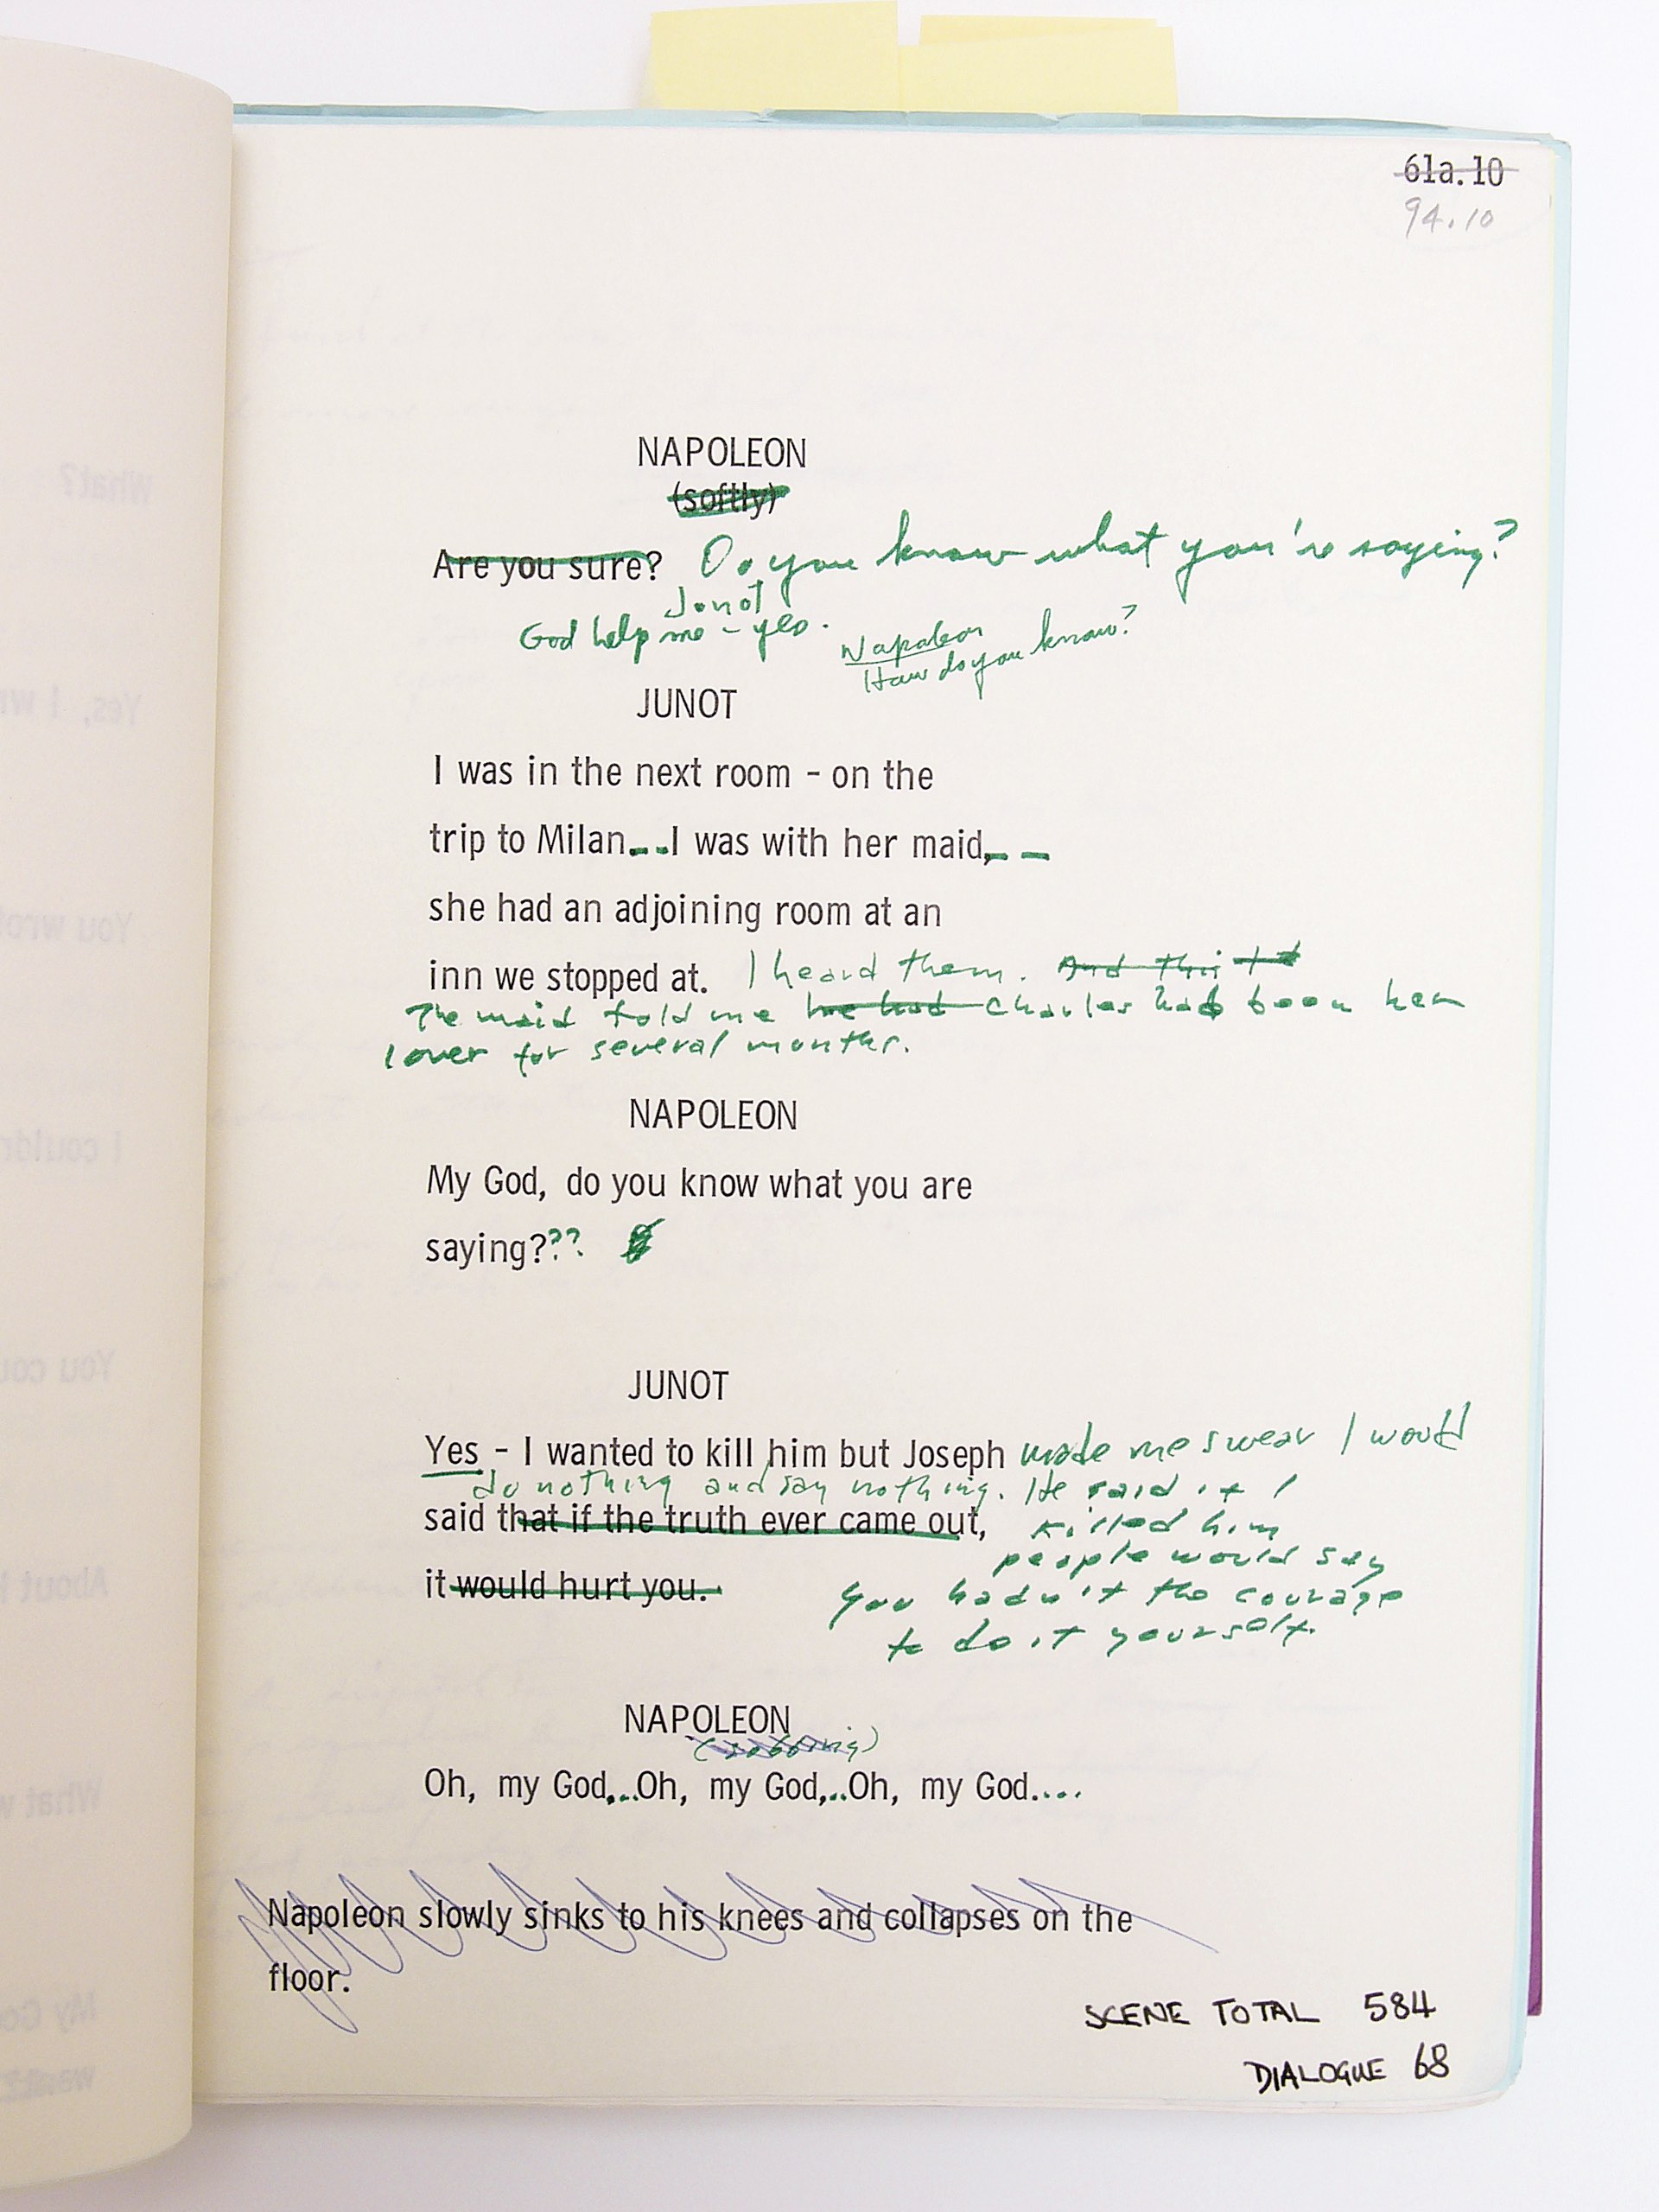 61a.10
94.10
NAPOLEON
(softly)
Are you sure? Do you know what you're saying?
Junot
God help me - yes.
Napoleon
How do you know?
JUNOT
I was in the next room - on the
trip to Milan...I was with her maid, - -
she had an adjoining room at an
inn we stopped at. I heard them. And this
The maid told me he had Charles had been her
lover for several months.
NAPOLEON
My God, do you know what you are
saying???
JUNOT
Yes - I wanted to kill him but Joseph made me swear I would
do nothing and say nothing. He said if I
said that if the truth ever came out, killed him
people would say
it would hurt you. you hadn't the courage
to do it yourself.
NAPOLEON
(sobbing)
Oh, my God,...Oh, my God,...Oh, my God....
Napoleon slowly sinks to his knees and collapses on the
floor.
SCENE TOTAL 584
DIALOGUE 68
What?
Yes, I
You
I
You
About
What
My
want?